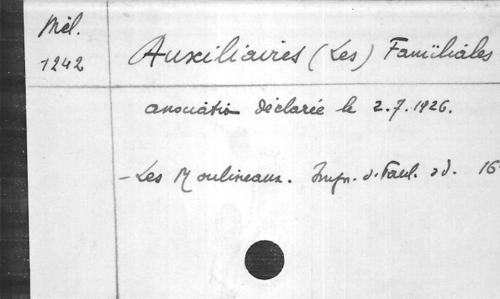 Mél.
1242
Auxiliaires (Les) Familiales
association déclarée le 2.7.1926.
- Les Moulineaux. Impr. d. s.d. 16